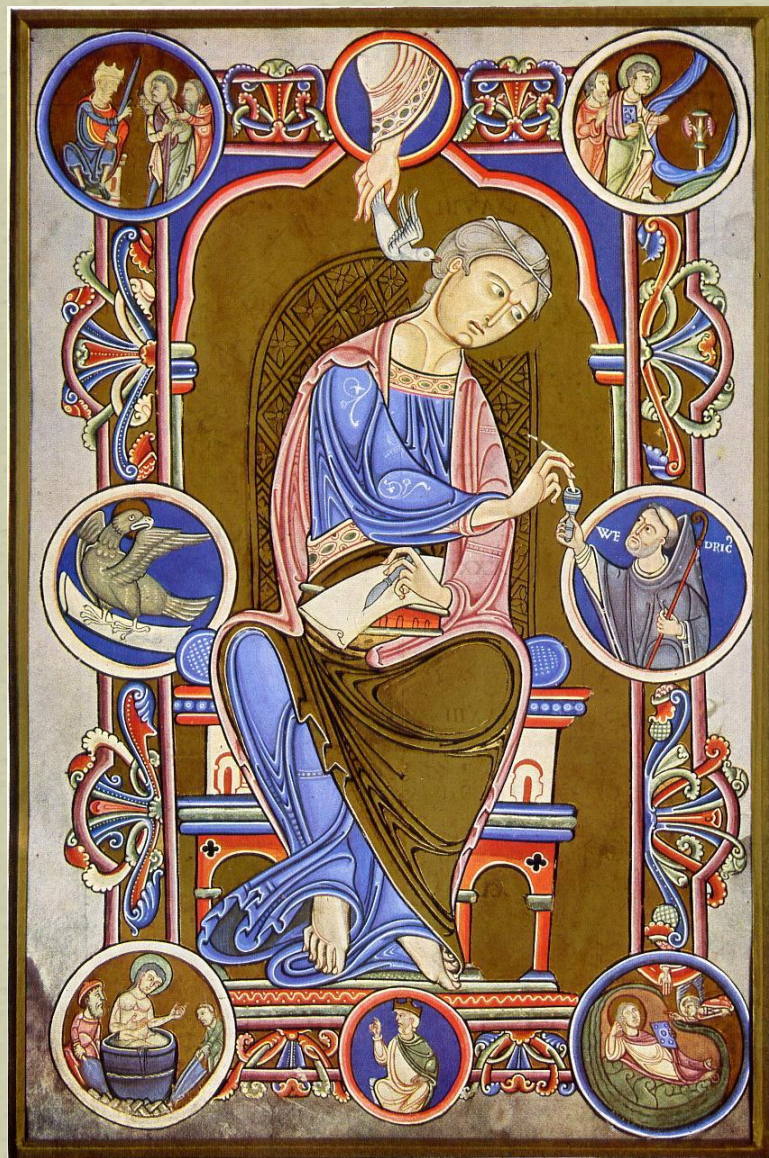 WE DRICꝰ